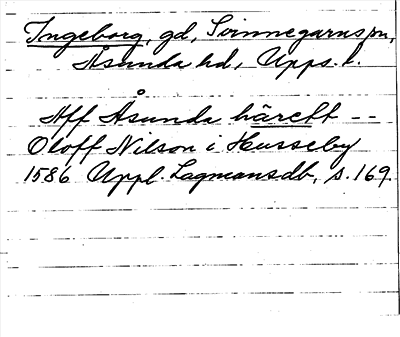 Ingeborg, gd, Svinnegarns sn,
Åsunda hd, Upps. l.
Aff Åsunda härett --
Oloff Nilson i Husseby
1586 Uppl. Lagmansdb, s. 169.